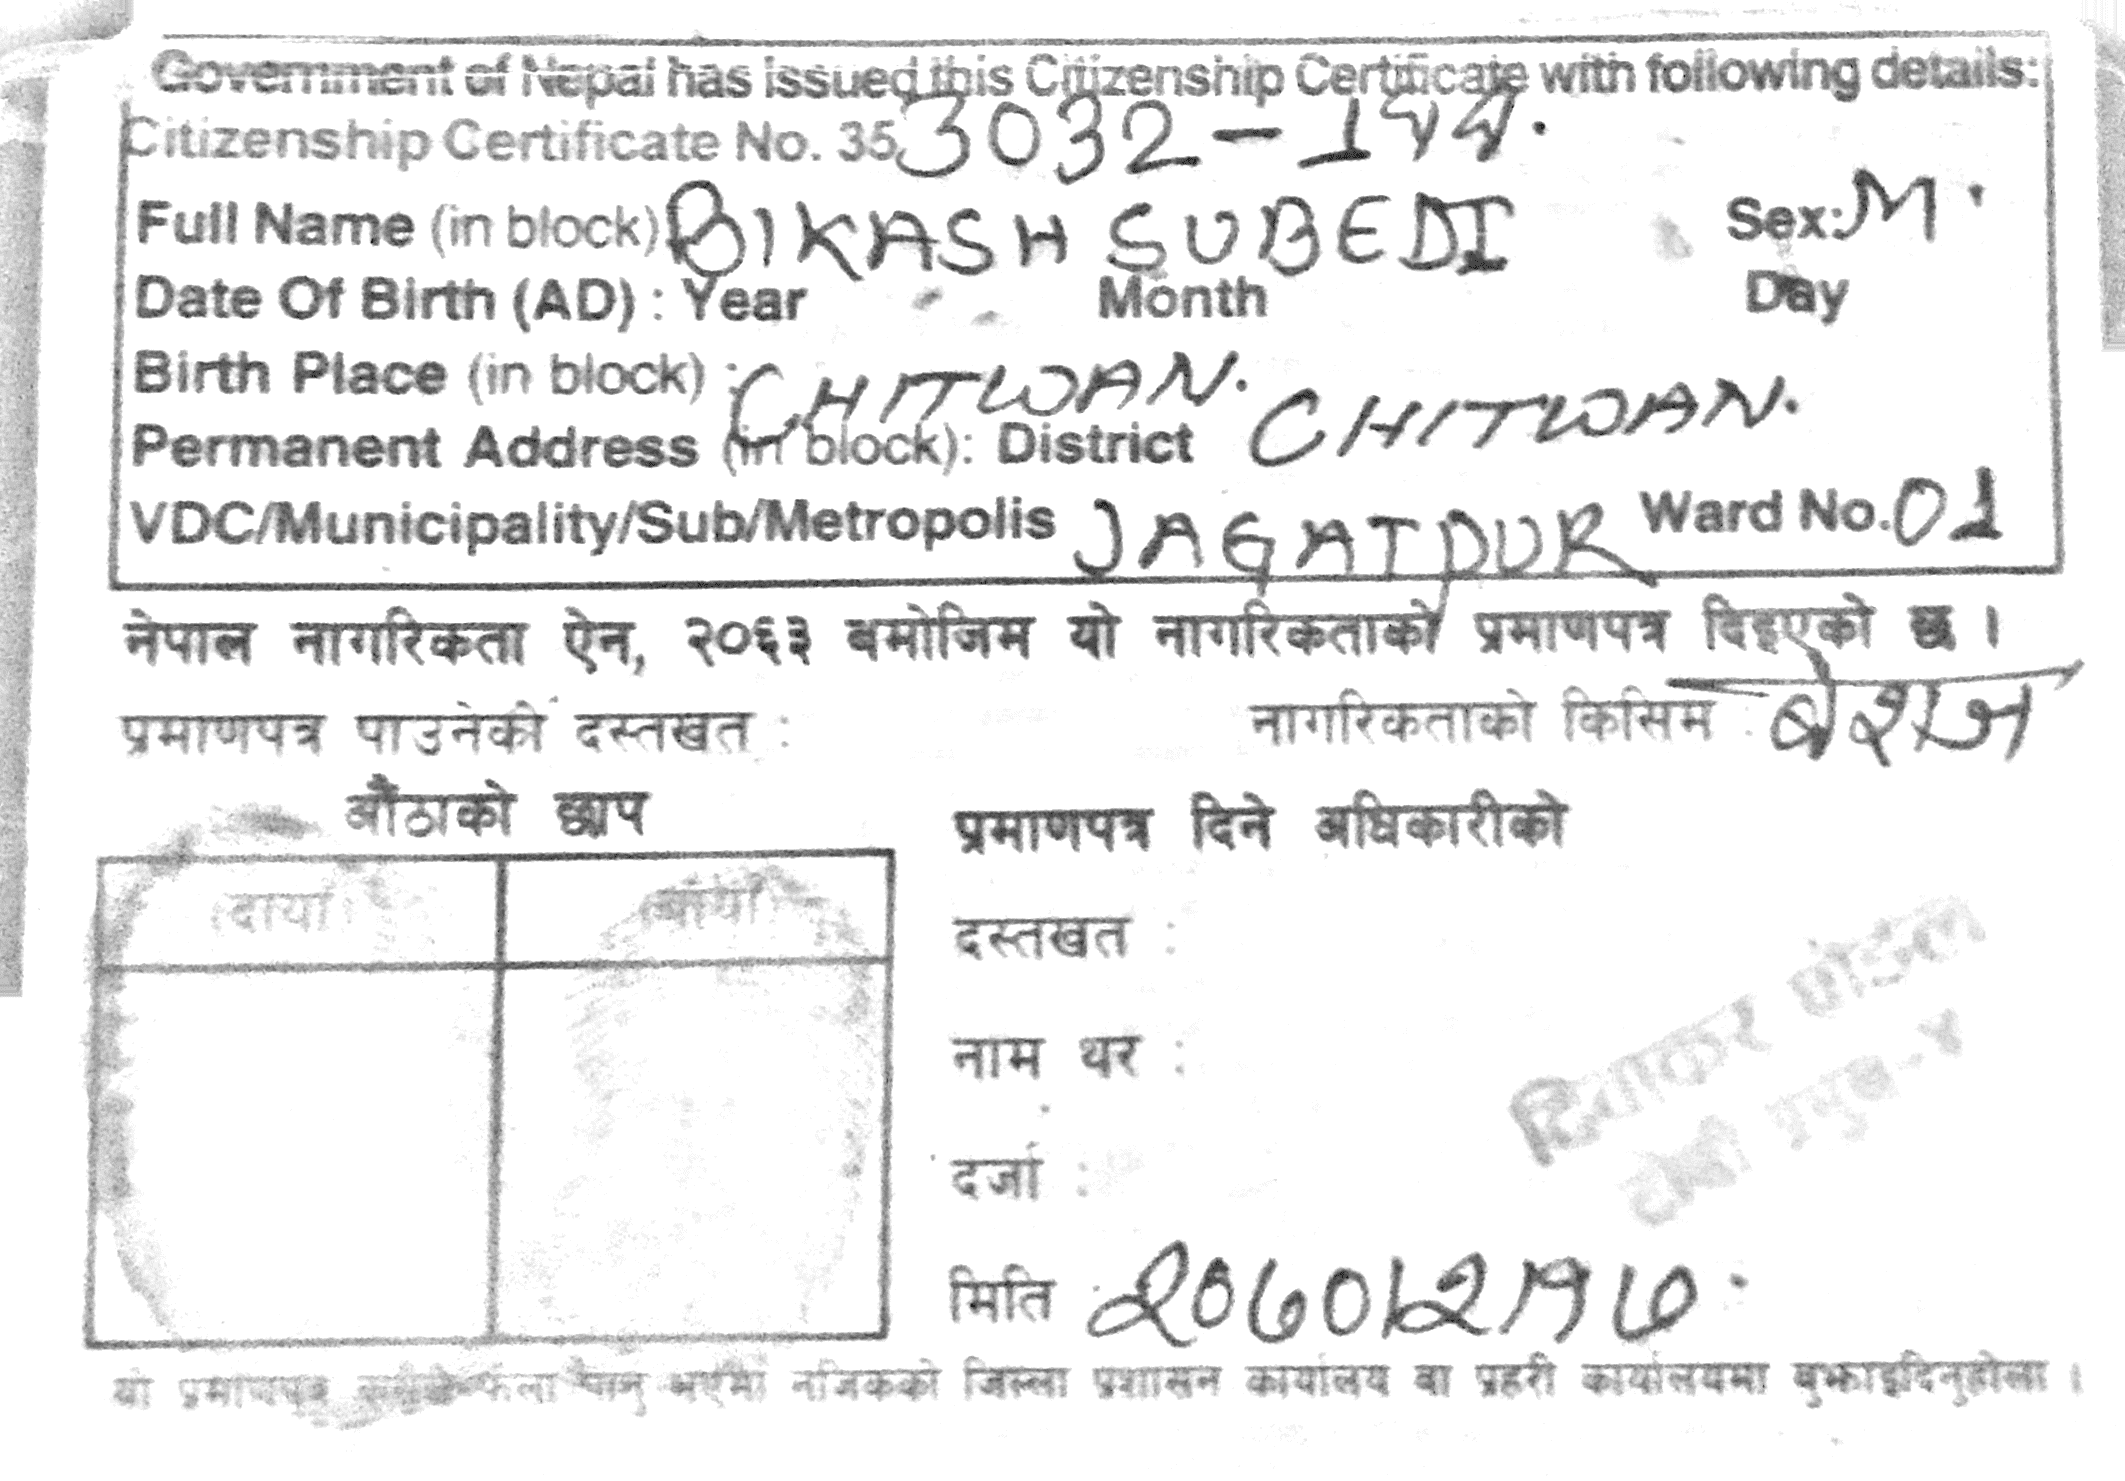 Government of Nepal has issued this Citizenship Certificate with following details:
Citizenship Certificate No. 35 3032-1
Full Name (in block) BIKASH SUBEDI Sex: M.
Date Of Birth (AD) : Year Month Day
Birth Place (in block) : CHITWAN.
Permanent Address (in block): District CHITWAN.
VDC/Municipality/Sub/Metropolis JAGATPUR Ward No. 01
नेपाल नागरिकता ऐन, २०६३ बमोजिम यो नागरिकताको प्रमाणपत्र दिइएको छ ।
प्रमाणपत्र पाउनेको दस्तखत : नागरिकताको किसिम : वंशज
औंठाको छाप
दायाँ बायाँ
प्रमाणपत्र दिने अधिकारीको
दस्तखत :
नाम थर :
दर्जा :
मिति :
यो प्रमाणपत्र फेला पार्नु भएमा नजिकको जिल्ला प्रशासन कार्यालय वा प्रहरी कार्यालयमा बुझाइदिनुहोला ।